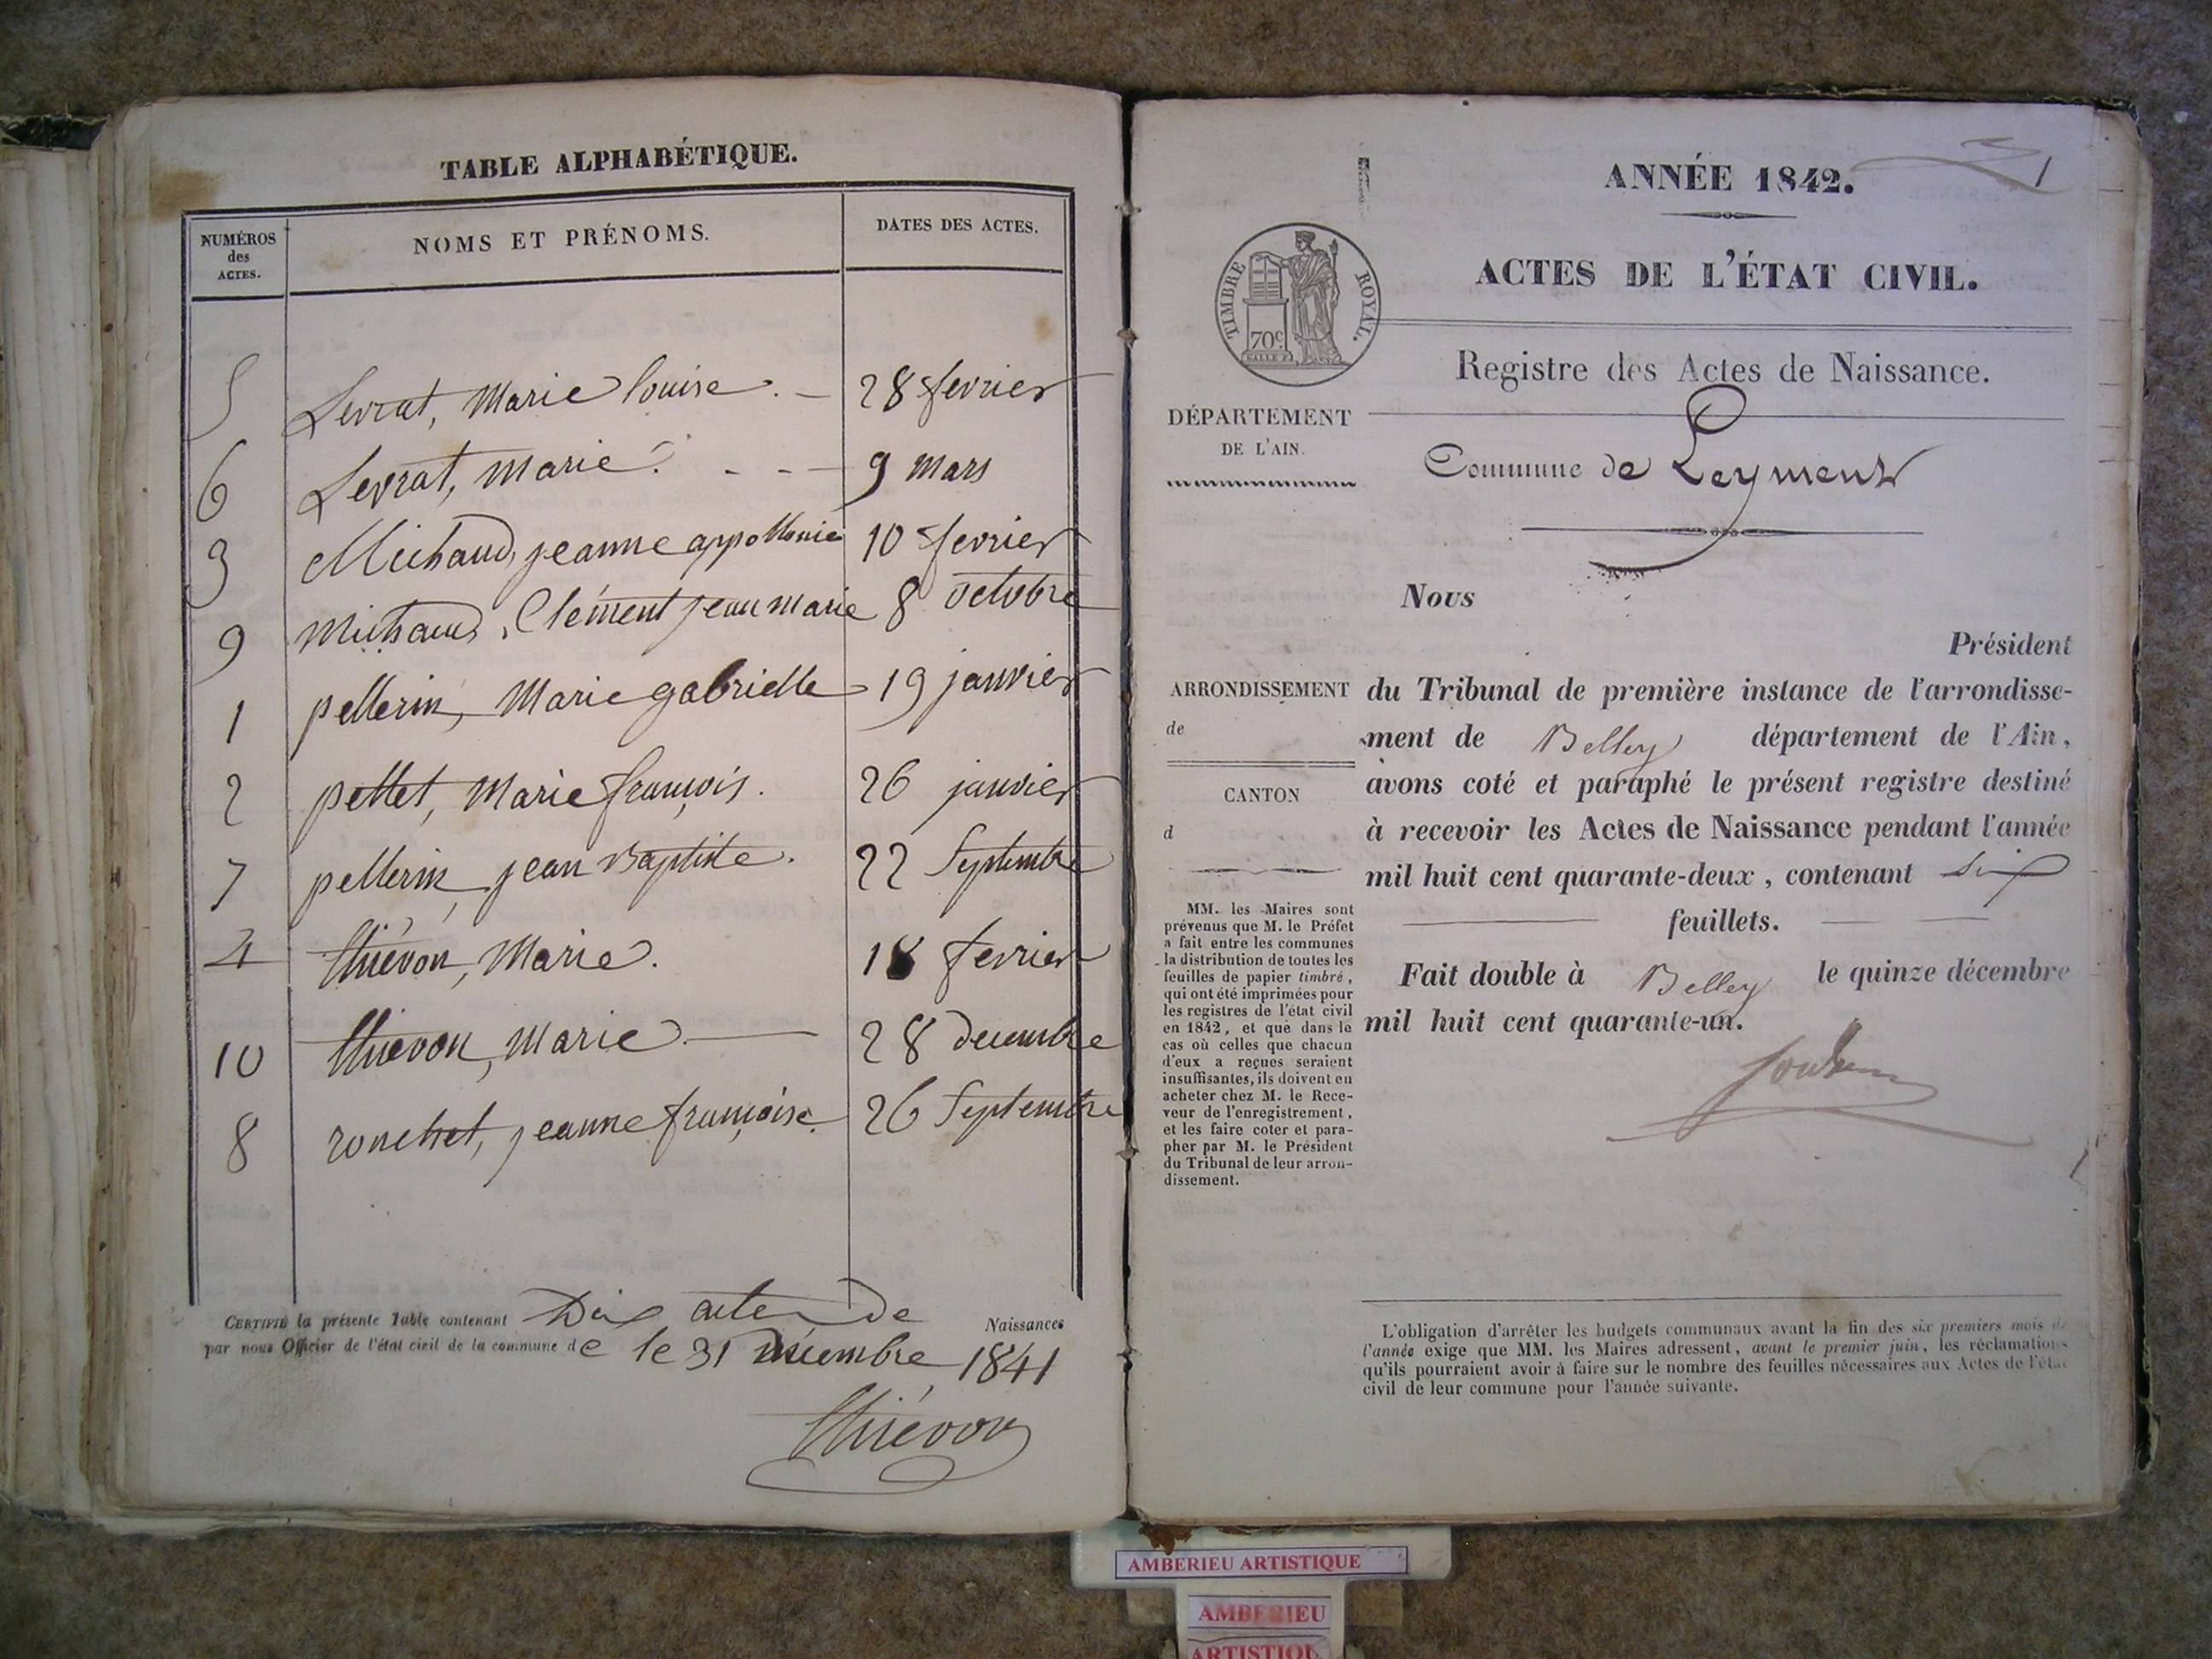 TABLE ALPHABÉTIQUE.
NUMÉROS des ACTES. NOMS ET PRÉNOMS. DATES DES ACTES.
5 Levrat, Marie louise. - 28 fevrier
6 Levrat, marie. - - - 9 mars
3 Michaud, jeanne appollonie 10 fevrier
9 Michaud, Clément jean marie 8 octobre
1 pellerin, Marie gabrielle - 19 janvier
2 pettet, Marie françois. 26 janvier
7 pellerin, jean Baptiste. 22 Septembre
4 thiévon, Marie. 18 fevrier
10 thiévon, Marie. — 28 decembre
8 ronchet, jeanne françoise. 26 Septembre
CERTIFIÉ la présente Table contenant Dix actes de Naissances
par nous Officier de l'état civil de la commune de le 31 Décembre 1841
thiévon
1
ANNÉE 1842.
ACTES DE L'ÉTAT CIVIL.
TIMBRE ROYAL.
70c
Registre des Actes de Naissance.
DÉPARTEMENT
DE L'AIN.
Commune de Leyment
Nous
Président
ARRONDISSEMENT
de
CANTON
d
du Tribunal de première instance de l'arrondisse-
ment de Belley département de l'Ain,
avons coté et paraphé le présent registre destiné
à recevoir les Actes de Naissance pendant l'année
mil huit cent quarante-deux, contenant six
feuillets.
Fait double à Belley le quinze décembre
mil huit cent quarante-un.
MM. les Maires sont
prévenus que M. le Préfet
a fait entre les communes
la distribution de toutes les
feuilles de papier timbré,
qui ont été imprimées pour
les registres de l'état civil
en 1842, et que dans le
cas où celles que chacun
d'eux a reçues seraient
insuffisantes, ils doivent en
acheter chez M. le Rece-
veur de l'enregistrement,
et les faire coter et para-
pher par M. le Président
du Tribunal de leur arron-
dissement.
L'obligation d'arrêter les budgets communaux avant la fin des six premiers mois de
l'année exige que MM. les Maires adressent, avant le premier juin, les réclamations
qu'ils pourraient avoir à faire sur le nombre des feuilles nécessaires aux Actes de l'état
civil de leur commune pour l'année suivante.
AMBERIEU ARTISTIQUE
AMBERIEU
ARTISTIQU